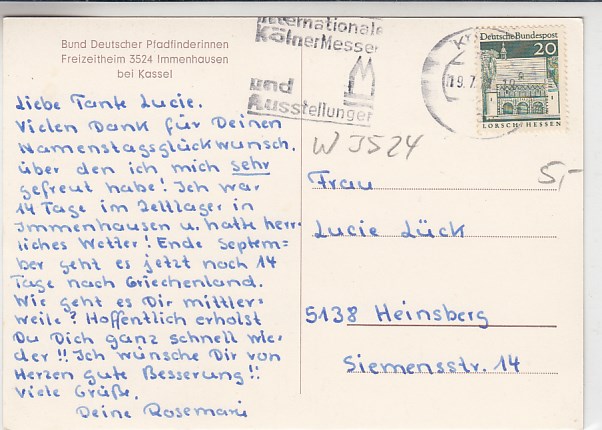 Bund Deutscher Pfadfinderinnen
Freizeitheim 3524 Immenhausen
bei Kassel
Liebe Tante Lucie.
Vielen Dank für Deinen
Namenstagsglückwunsch,
über den ich mich sehr
gefreut habe! Ich war
14 Tage im Zeltlager in
Immenhausen u. hatte herr-
liches Wetter! Ende Septem=
ber geht es jetzt noch 14
Tage nach Griechenland.
Wie geht es Dir mittler-
weile? Hoffentlich erholst
Du Dich ganz schnell wie-
der!! Ich wünsche Dir von
Herzen gute Besserung!!
Viele Grüße.
Deine Rosemarie
Internationale
KölnerMessen
und
Ausstellungen
19.7.
Deutsche Bundespost
20
LORSCH/HESSEN
W 3524
5,-
Frau
Lucie Lück
5138 Heinsberg
Siemensstr. 14